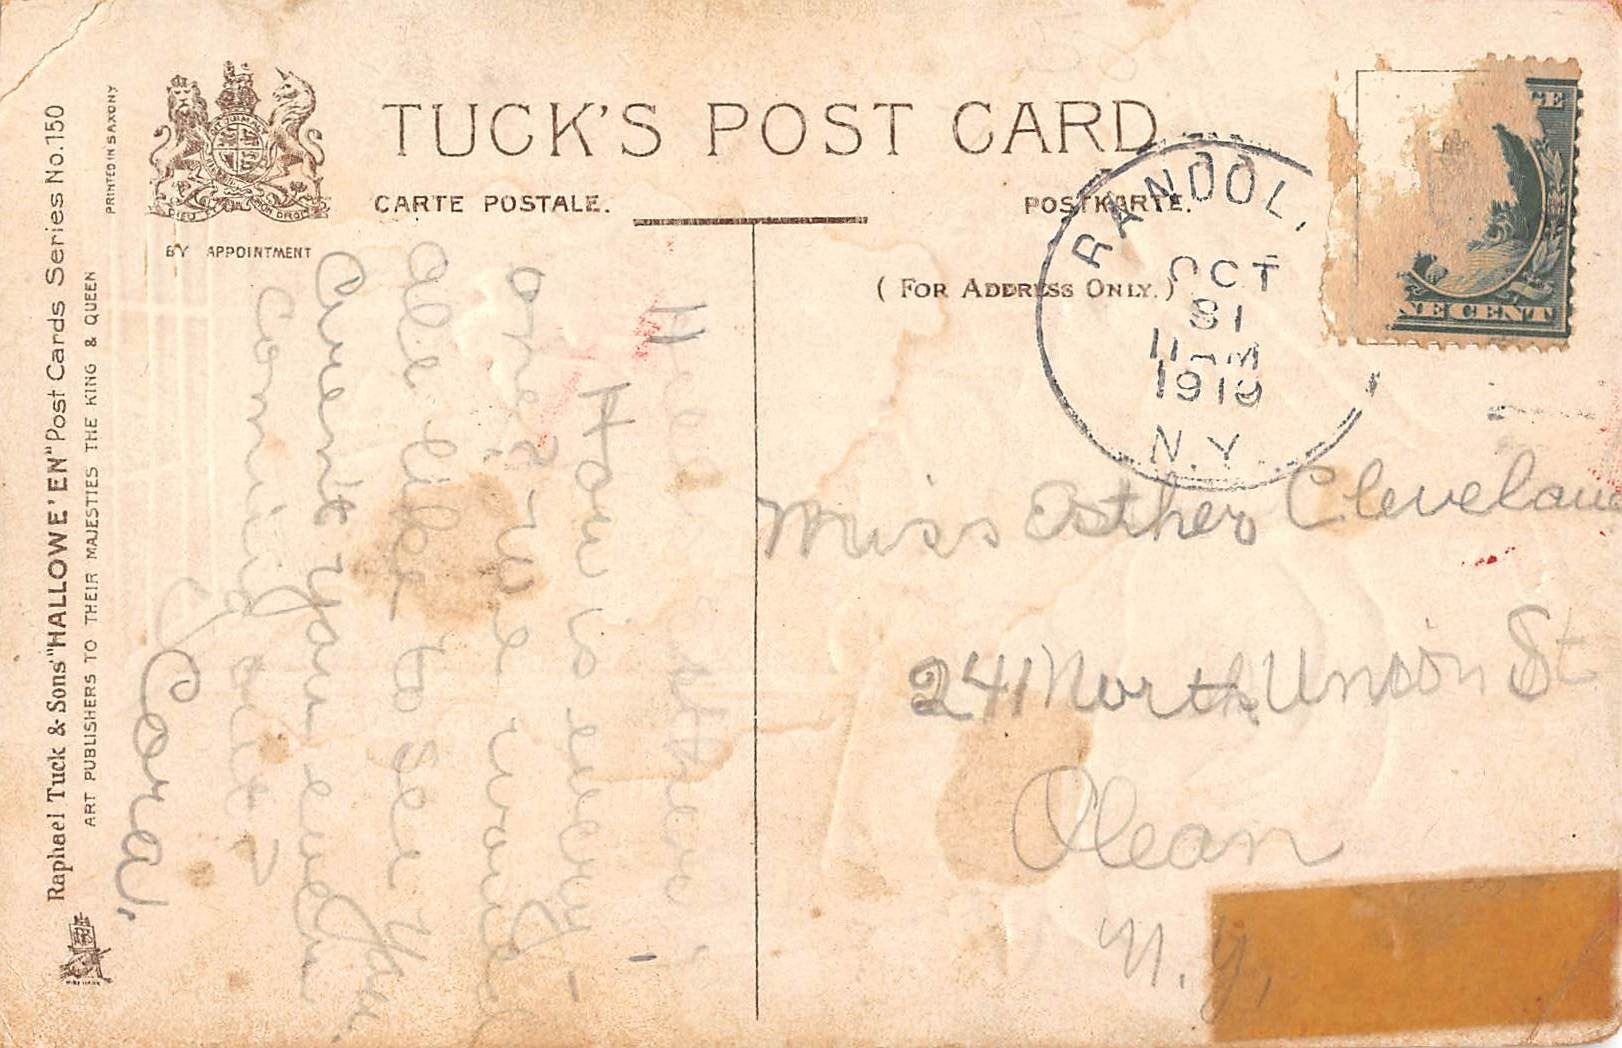 Raphael Tuck & Sons' "HALLOWE'EN" Post Cards Series No. 150
ART PUBLISHERS TO THEIR MAJESTIES THE KING & QUEEN
PRINTED IN SAXONY
BY APPOINTMENT
TUCK'S POST CARD
CARTE POSTALE.
POSTKARTE.
(FOR ADDRESS ONLY.)
RANDOL,
OCT
31
11 AM
1919
N.Y.
NE CENT
Hello Esther
How is every-
one? We would
all like to see you.
Aren't you ever
coming out?
Cora.
Miss Esther Cleveland
241 North Union St
Olean
N.Y.